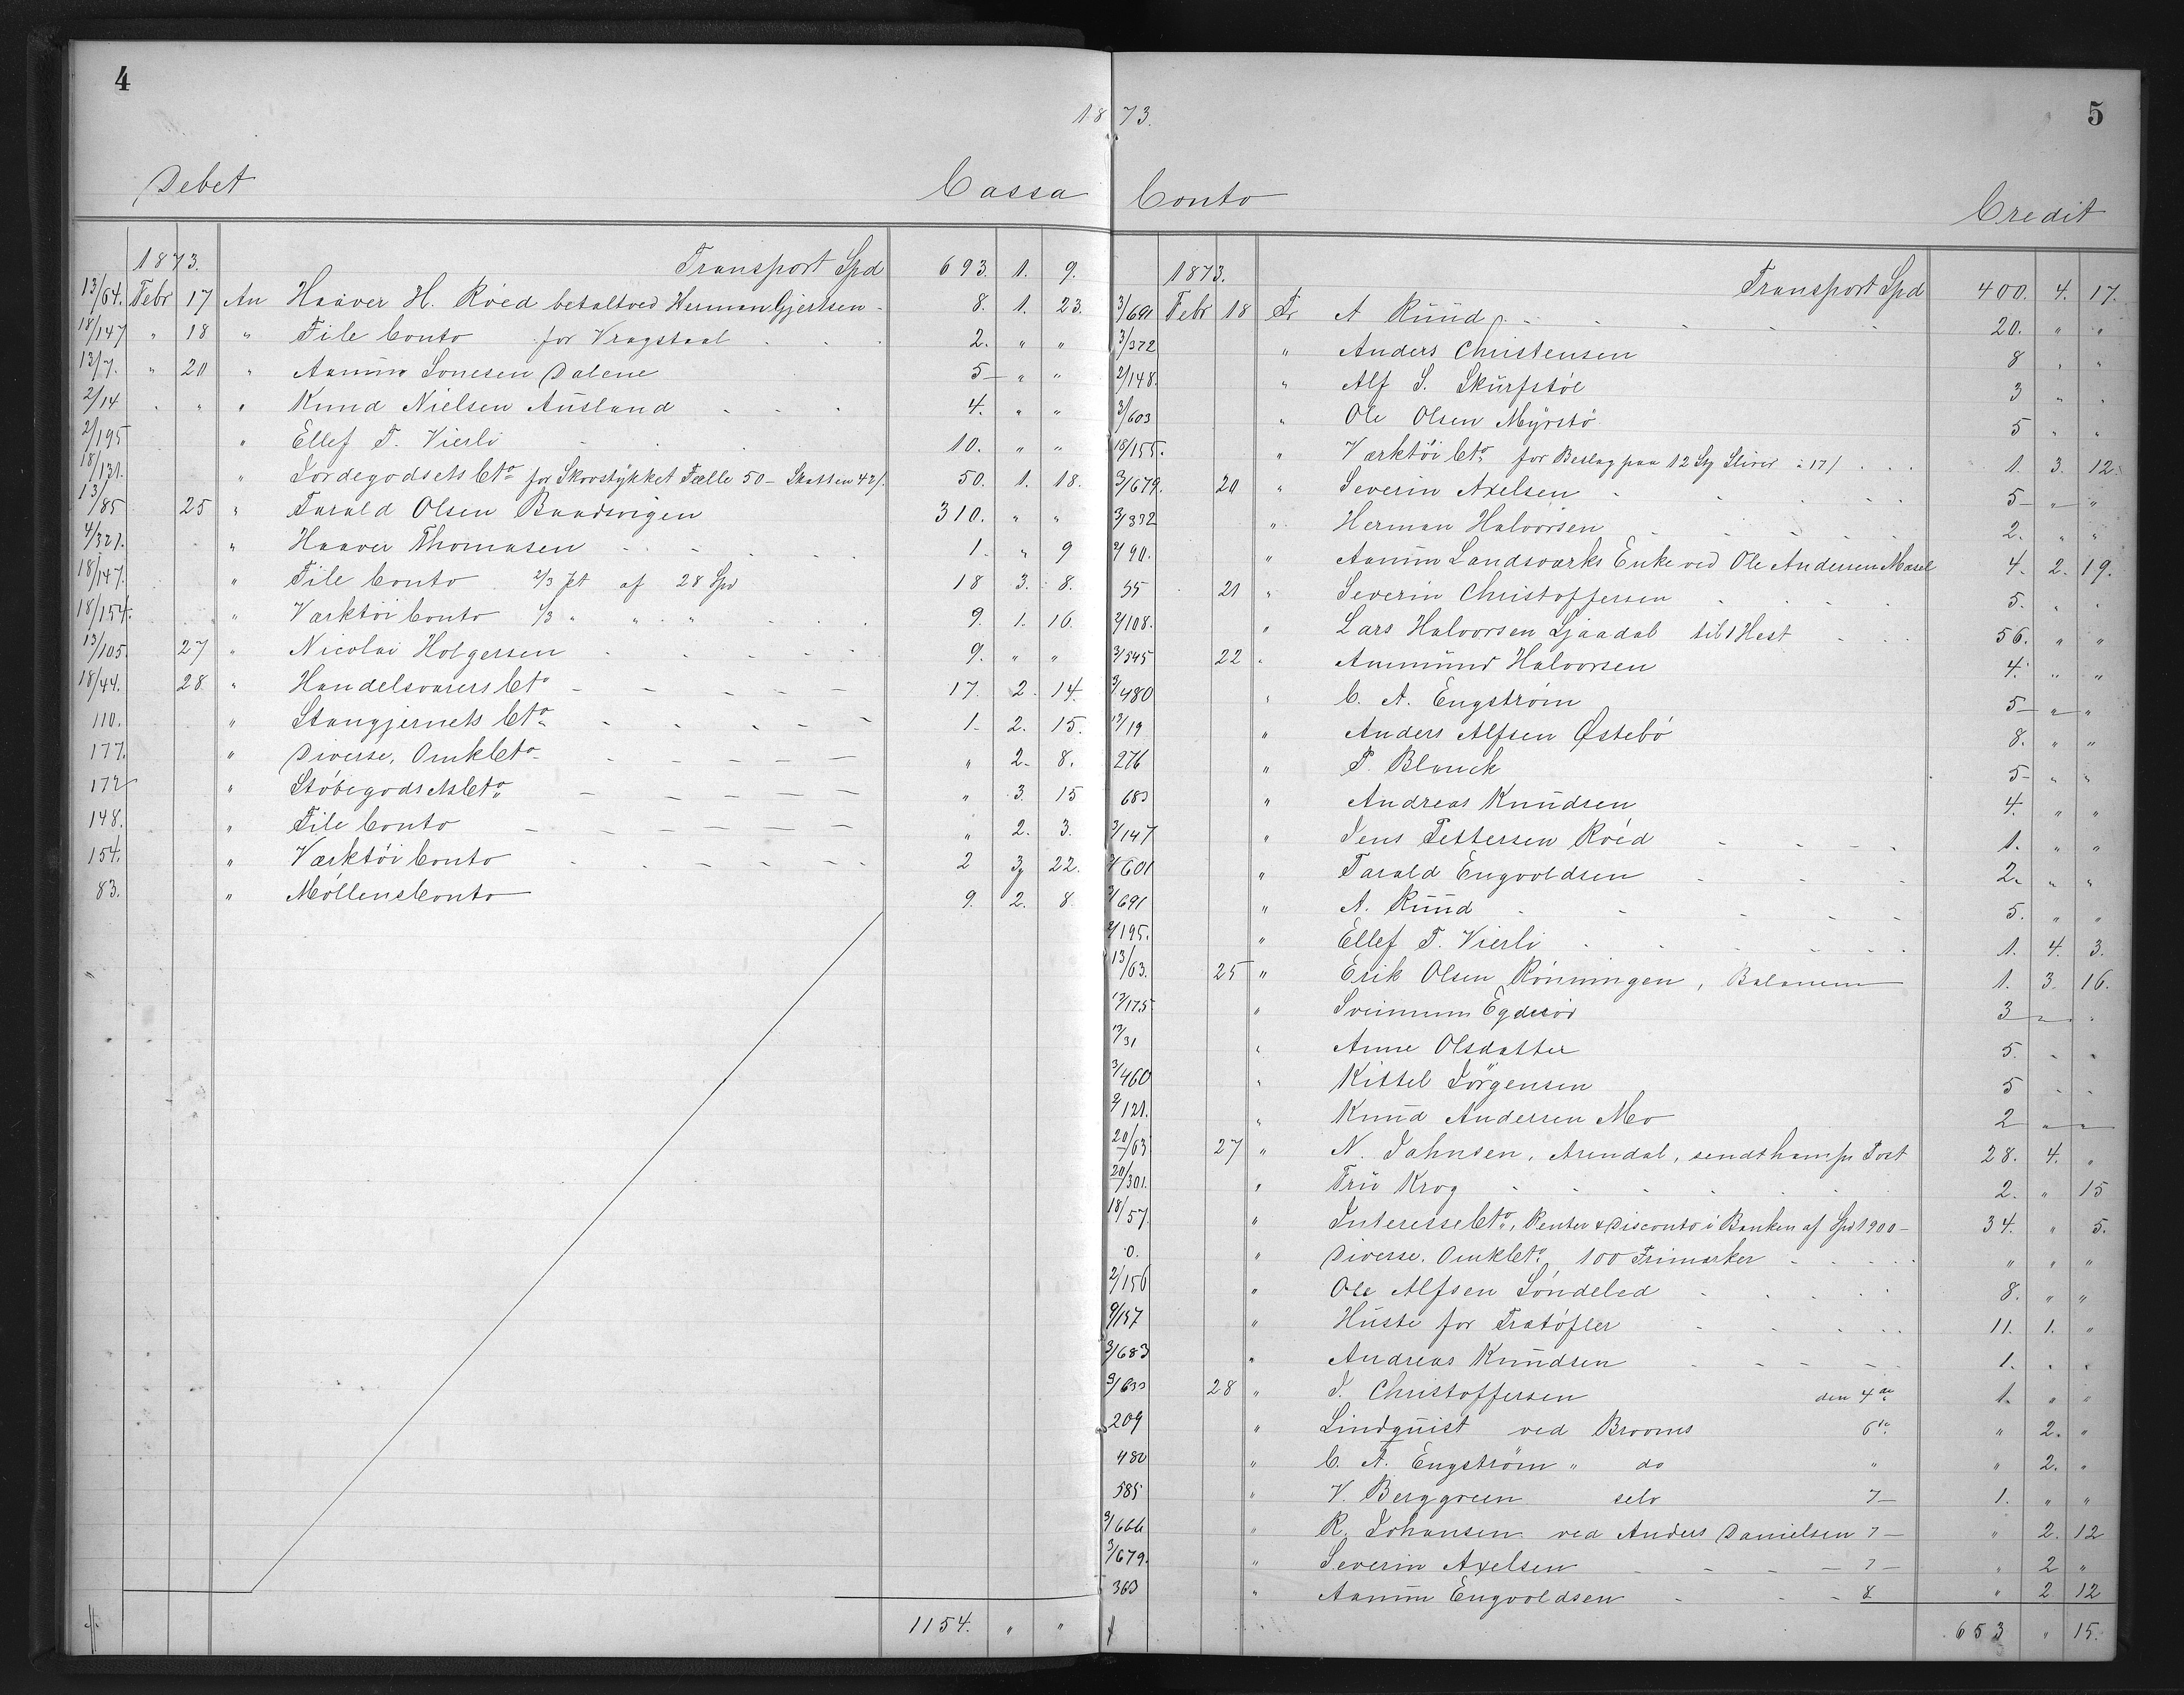 4
18
Debet
Cassa
1873. Transport Spd 693. 1. 9.
13/64. Febr 17 An Haaver H. Røed betalt ved Herman Gjertsen - 8. 1. 23.
18/147 " 18 " File Conto for Vragstaal 2. " "
13/7. " 20 " Aanun Lonesen Dalene 5 - " "
2/14 " " " Knud Nielsen Ausland 4. " "
2/195 " Ellef T. Vierli 10. " "
18/131. " Jordegodsets Cto for Skovstykket Fælle 50 - Skatten 42/. 50. 1. 18.
13/85 25 " Tarald Olsen Baadsvigen 310. " "
4/321. " Haaver Thomasen 1. " 9
18/147. " File Conto 2/3 pt af 28 Spd 18 3. 8.
18/154. " Værktøi Conto 1/3 " " " 9. 1. 16.
13/105 27 " Nicolai Holgersen 9. " "
18/44. 28 " Handelsvarers Cto 17. 2. 14.
110. " Stangjernets Cto 1. 2. 15.
177. " Diverse, Omk Cto " 2. 8.
172 " Støbegodsets Cto " 3. 15
148. " File Conto " 2. 3.
154. " Værktøi Conto 2 3 22.
83. " Møllens Conto 9. 2. 8
1154. " "
73.
5
Conto
Credit
1873. Transport Spd 400. 4. 17.
3/691 Febr 18 Pr A Ruud 20. " "
3/372 " Anders Christensen 8 " "
2/148. " Alf S. Skurfstøl 3 " "
3/603 " Ole Olsen Myrstø 5 " "
18/155. " Værktøi Cto for Beslag paa 12 Stg Slirer a 17/ 1. 3. 12.
3/679. 20 " Severin Axelsen 5 - " "
3/332 " Herman Halvorsen 2. " "
2/90. " Aanun Landsværks Enke ved Ole Andersen Masel 4. 2. 19.
55 21 " Severin Christoffersen 5. " "
2/108. " Lars Halvorsen Ljaadal til 1 Hest 56. " "
3/545 22 " Aanmund Halvorsen 4. " "
3/480 " C. A. Engstrøm 5 - " "
13/19 " Anders Alfsen Østebø 8. " "
276 " P. Blanck 5 - " "
683 " Andreas Knudsen 4. " "
3/147 " Jens Pettersen Røed 1. " "
3/601 " Tarald Engvoldsen 2. " "
3/691 " A. Ruud 5. " "
2/195. " Ellef T. Vierli 1. 4. 3.
13/63. 25 " Erik Olsen Rønningen, Balanen 1. 3. 16.
13/175 " Svennum Egdesø 3 - " "
13/31 " Anne Olsdatter 5. " "
3/460 " Kittel Jørgensen 5 " "
2/121. " Knud Andersen Mo 2 " "
20/63 27 " N. Jahnsen, Arendal, sendt ham pr Post 28. 4. "
20/301. " Fru Krog 2. " 15
18/57. " Interesse Cto, Renter & Disconto i Banken af Spd 1900 - 34. " 5.
0. " Diverse. Omk Cto 100 Frimærker " " "
2/156 " Ole Alfsen Søndeled 8. " "
9/157 " Huste for Trætøfler 11. 1. "
3/683 " Andreas Knudsen 1. " "
3/633 28 " S. Christoffersen den 4de 1. " "
209 " Lindquist ved Brooms 6te " 2. "
480 " C. A. Engstrøm " do " " 2. "
585 " V. Berggreen selv 7 - 1. " "
3/666 " R. Johansen ved Anders Danielsen 7 - " 2. 12
3/679. " Severin Axelsen 7 - " 2 "
363 " Aanun Engvoldsen 8 " 2 12
653 " 15.